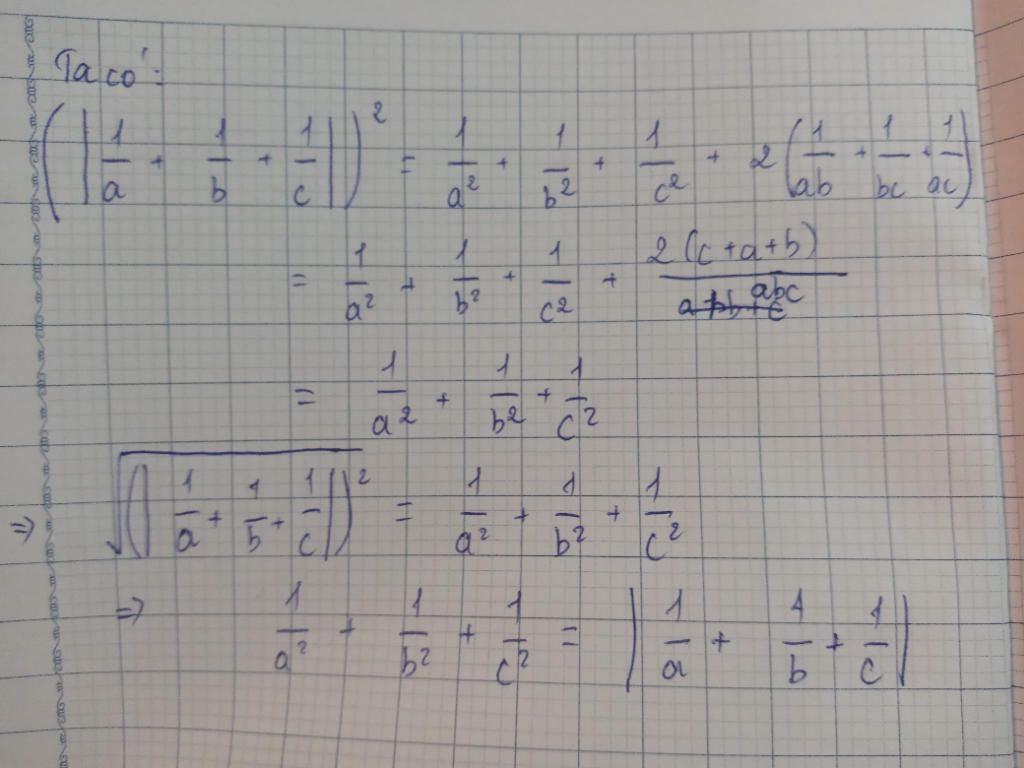 Ta có:
(|1/a + 1/b + 1/c|)² = 1/a² + 1/b² + 1/c² + 2(1/ab + 1/bc + 1/ac)
= 1/a² + 1/b² + 1/c² + 2(c+a+b)/abc
= 1/a² + 1/b² + 1/c²
⇒ √(|1/a + 1/b + 1/c|)² = 1/a² + 1/b² + 1/c²
⇒ 1/a² + 1/b² + 1/c² = |1/a + 1/b + 1/c|